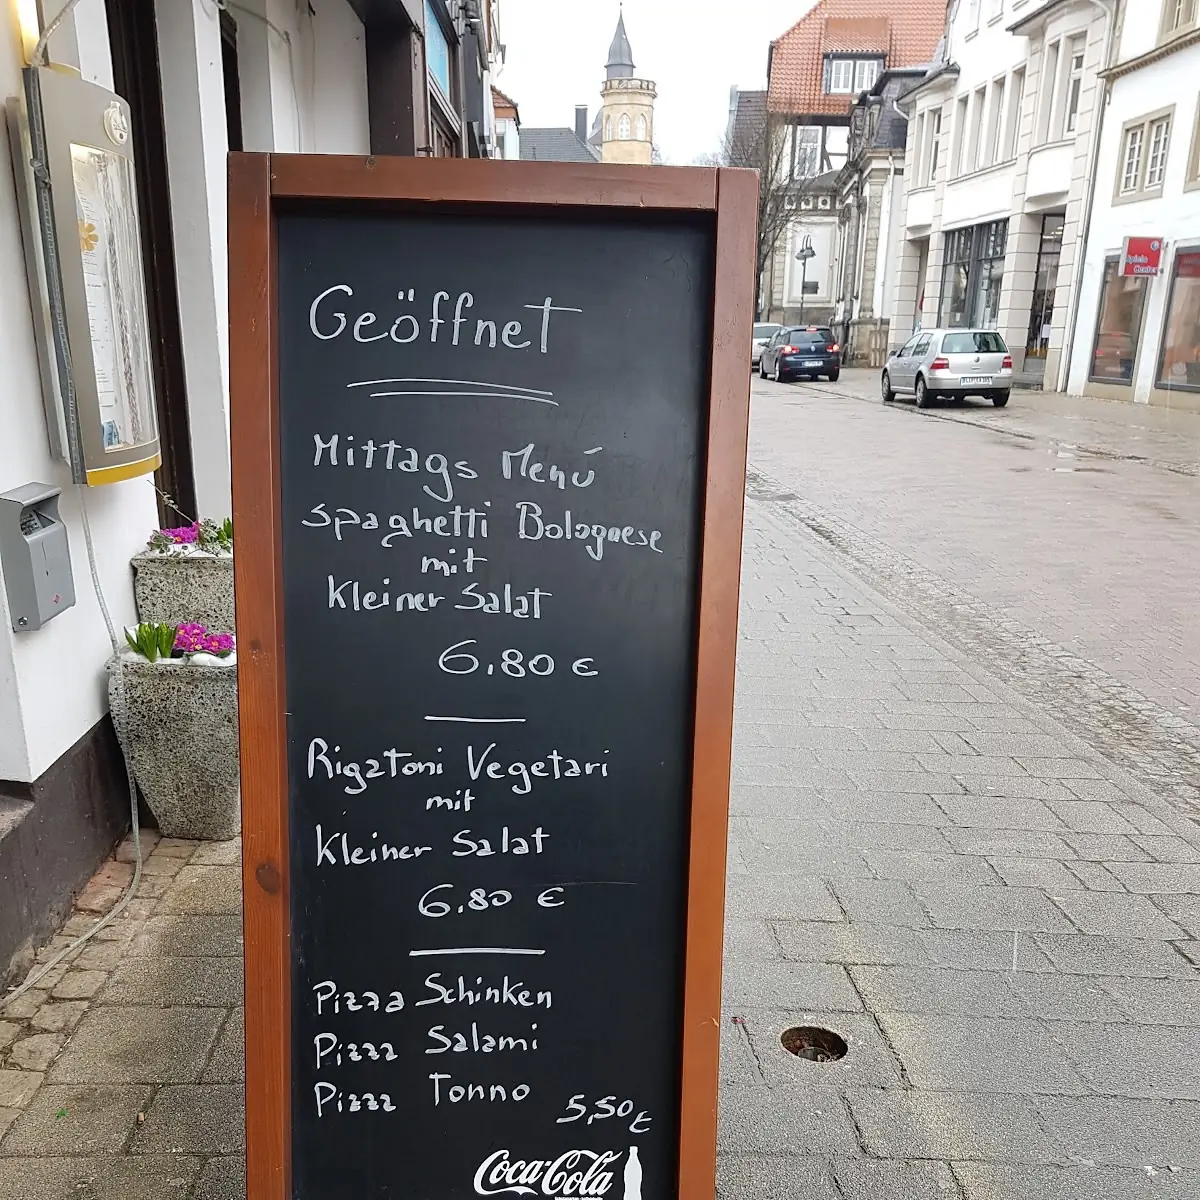 Geöffnet
Mittags Menú
Spaghetti Bolognese
mit
Kleiner Salat
6.80 €
Rigatoni Vegetari
mit
Kleiner Salat
6.80 €
Pizza Schinken
Pizzz Salami
Pizzz Tonno
5,50€
Coca-Cola